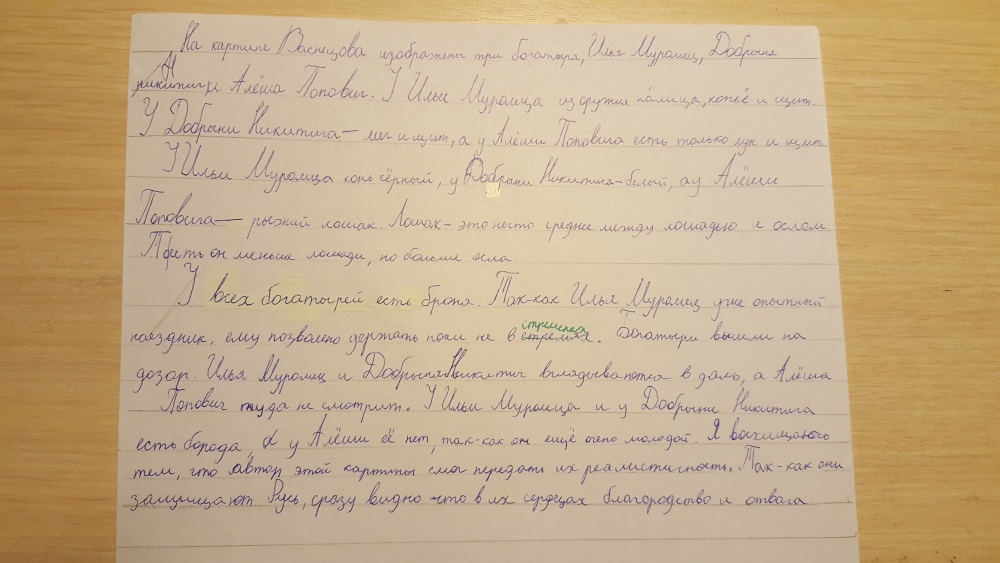 На картине Васнецова изображены три богатыря, Илья Муромец, Добрыня
Никитич и Алёша Попович. У Ильи Муромца из оружия палица, копьё и щит.
У Добрыни Никитича — меч и щит, а у Алёши Поповича есть только лук и щит
У Ильи Муромца конь чёрный, у Добрыни Никитича - белый, а у Алёши
Поповича — рыжий лошак. Лошак - это нечто среднее между лошадью и ослом
Тоесть он меньше лошади, но больше осла.
У всех богатырей есть броня. Так-как Илья Муромец уже опытный
наездник, ему позволено держать ноги не в стременах. Богатыри вышли на
дозор. Илья Муромец и Добрыня Никитич вглядываются в даль, а Алёша
Попович туда не смотрит. У Ильи Муромца и у Добрыни Никитича
есть борода, а у Алёши её нет, так-как он ещё очень молодой. Я восхищаюсь
тем, что автор этой картины смог передать их реалистичность. Так-как они
защищают Русь, сразу видно что в их сердцах благородство и отвага